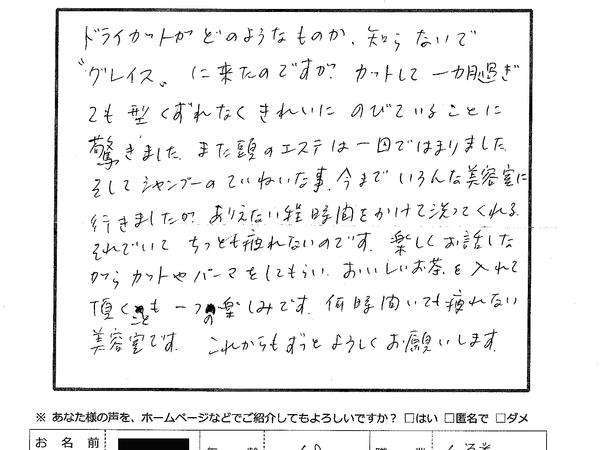 ドライカットがどのようなものか、知らないで
〝グレイス〟に来たのですが、カットして一カ月過ぎ
ても型くずれなくきれいにのびていることに
驚きました。また頭のエステは一回ではまりました。
そしてシャンプーのていねいな事、今までいろんな美容室に
行きましたが、ありえない程時間をかけて洗ってくれる。
それでいて ちっとも疲れないのです。楽しくお話しな
がらカットやパーマをしてもらい、おいしいお茶を入れて
頂くことも一つの楽しみです。何時間いても疲れない
美容室です。これからもずっとよろしくお願いします。
※ あなた様の声を、ホームページなどでご紹介してもよろしいですか? □はい □匿名で □ダメ
お名前